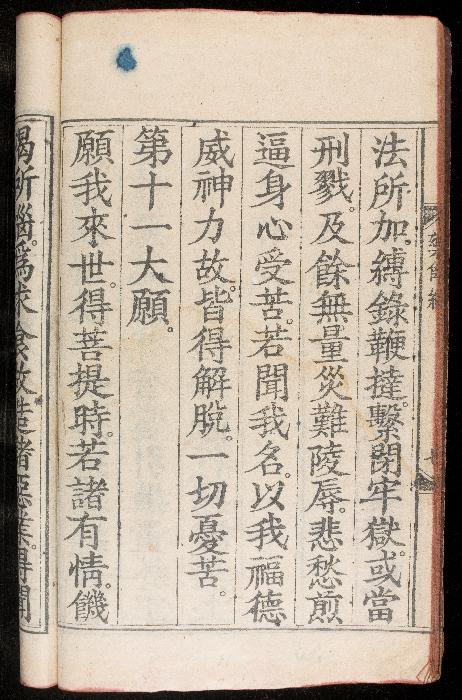 藥師經
七
法所加。縛錄鞭撻。繫閉牢獄。或當
刑戮。及餘無量災難陵辱。悲愁煎
逼身心受苦。若聞我名。以我福德
威神力故。皆得解脫。一切憂苦。
第十一大願。
願我來世。得菩提時。若諸有情。饑
渴所惱。爲求食故。造諸惡業。得聞